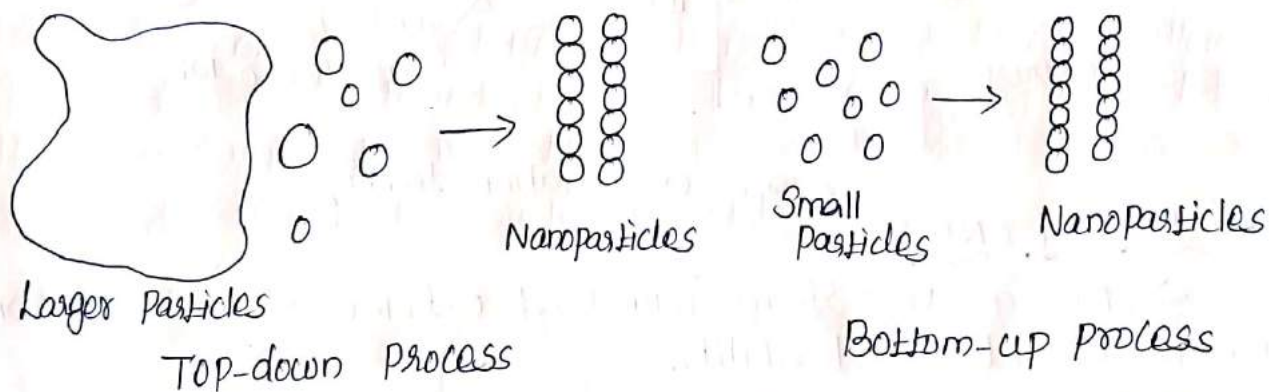 Larger Particles
Nanoparticles
Top-down Process
Small
Particles
Nanoparticles
Bottom-up Process